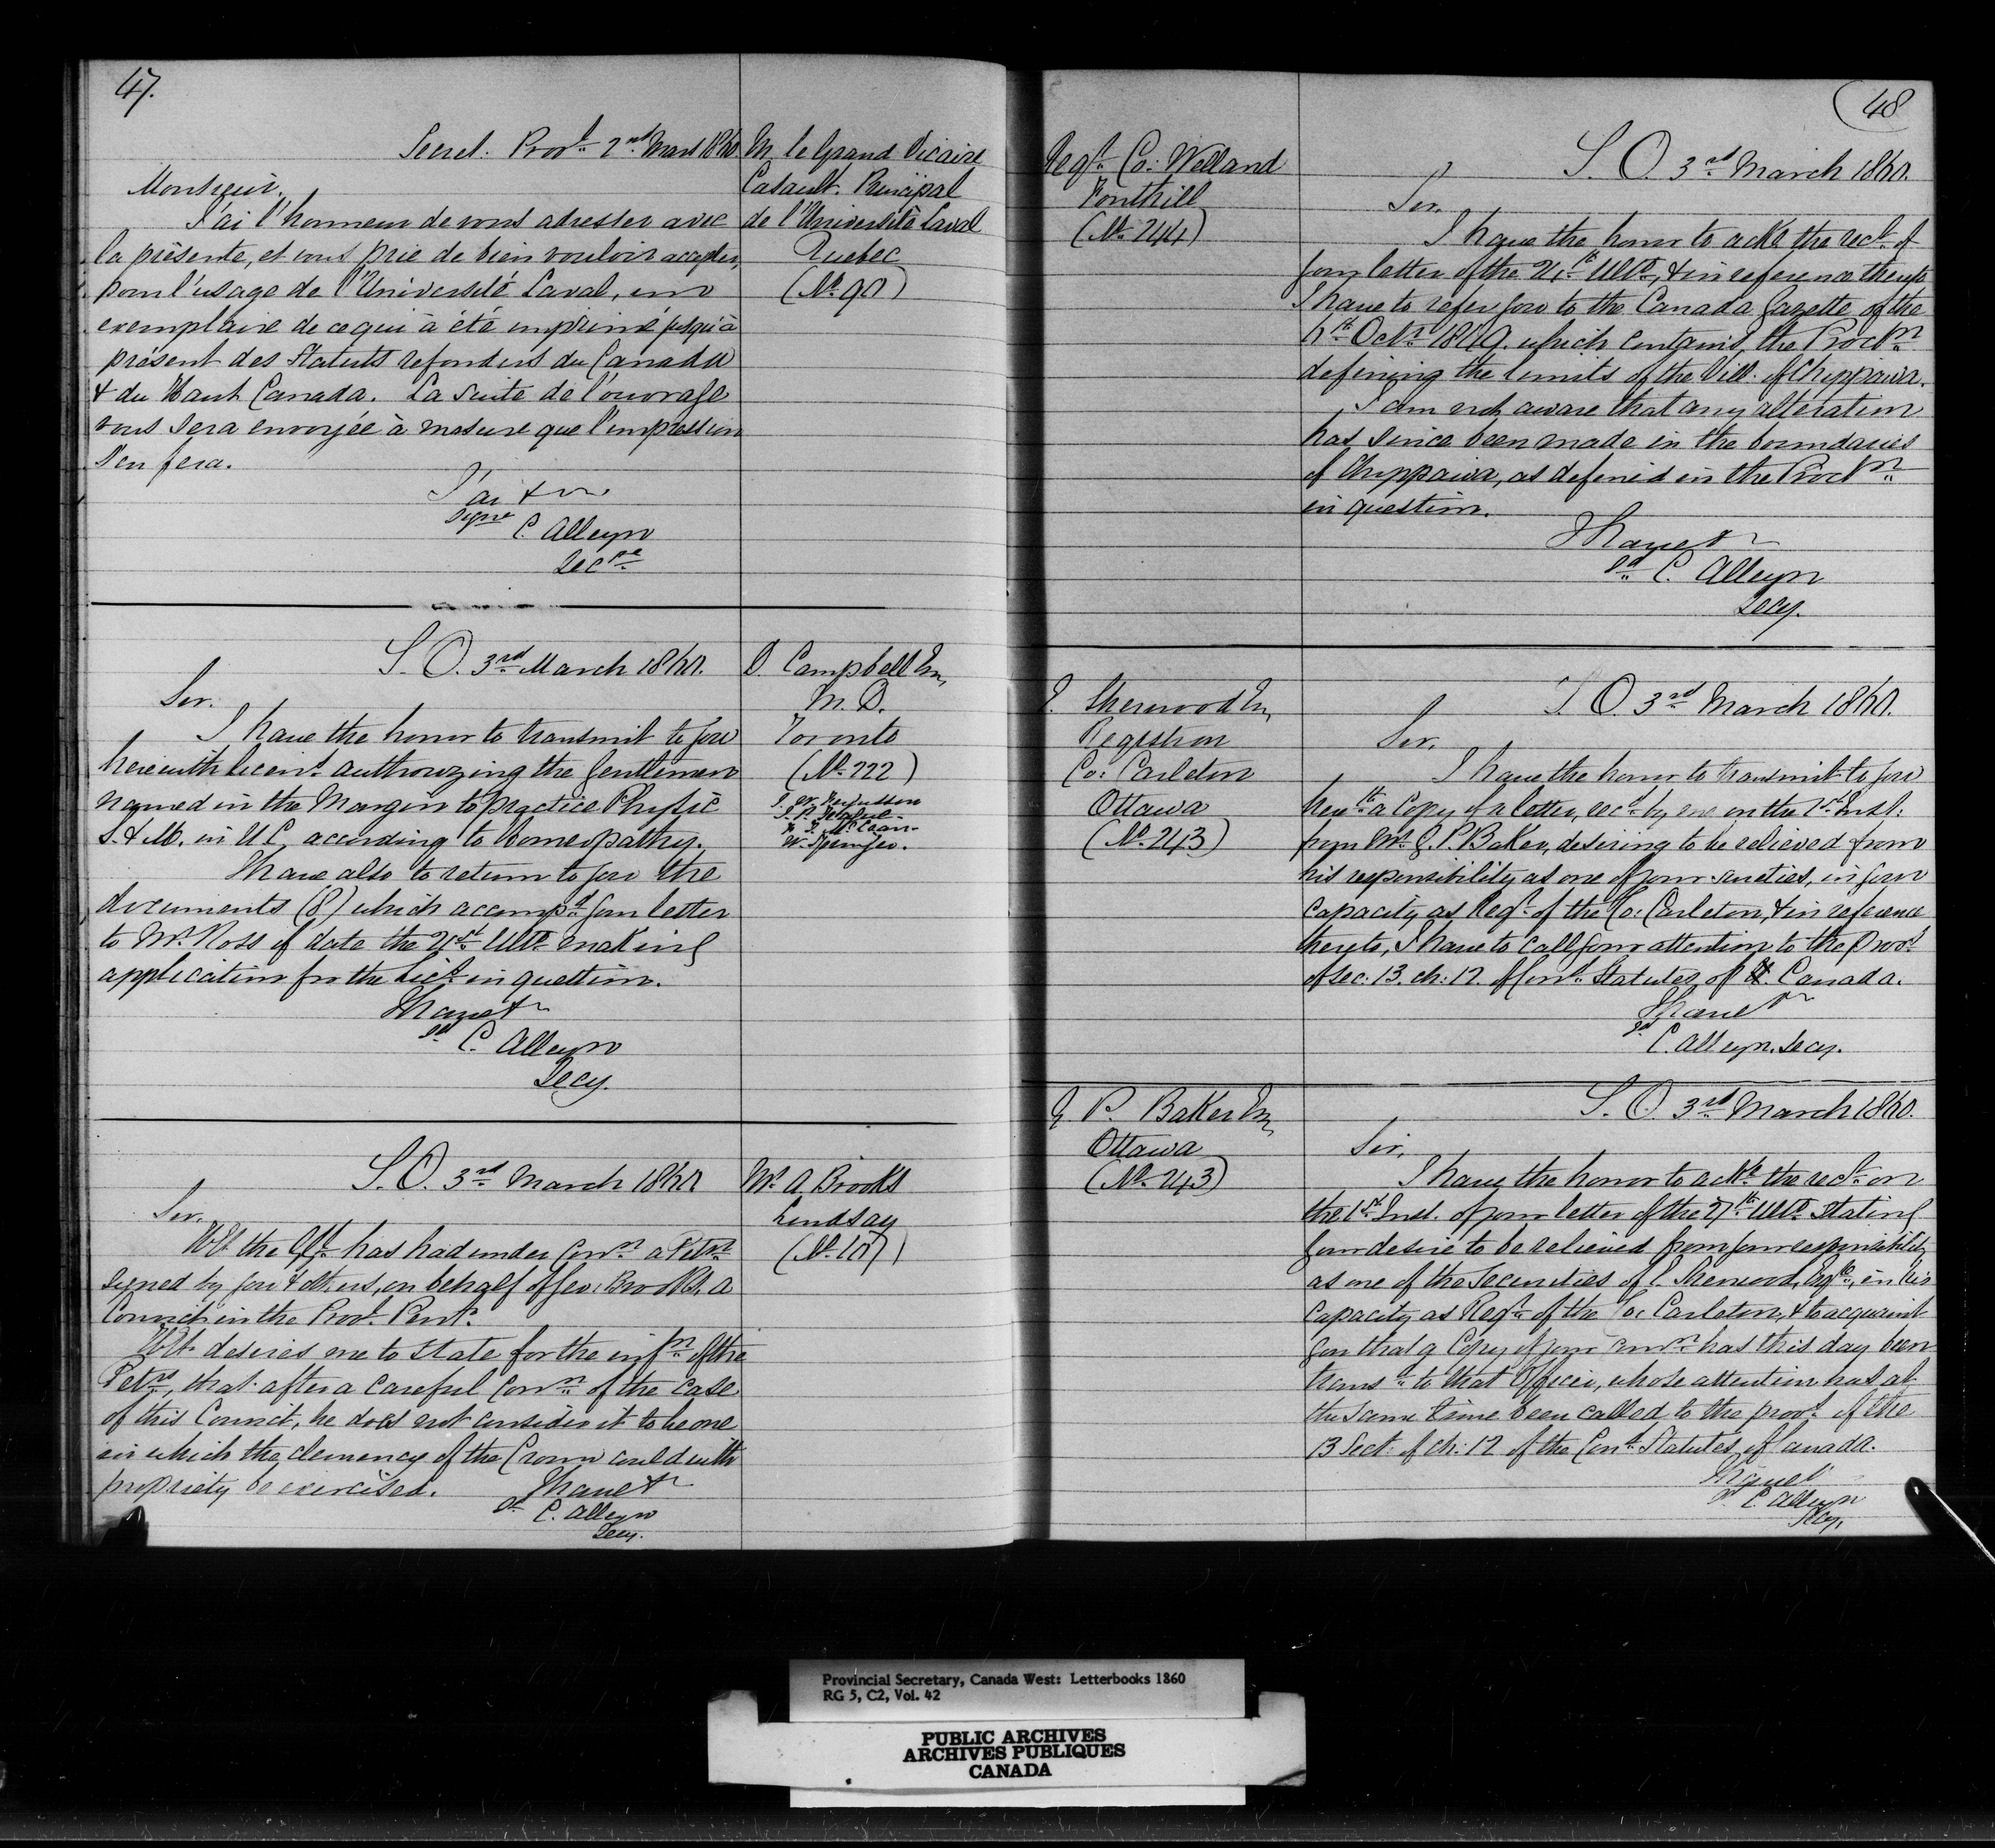 47.
Secret. Provl. 2nd Mars 1860
M. le Grand Vicaire
Casault. Principal
de l'Université Laval
Quebec
(No. 90)
Monsieur,
J'ai l'honneur de vous adresser avec
la présente, et vous prie de bien vouloir accepter,
pour l'usage de l'Université Laval, un
exemplaire de ce qui à été imprimé jusqu'à
présent des Statuts refondus du Canada
& du Haut Canada. La suite de l'ouvrage
vous sera envoyée à mesure que l'impression
s'en fera.
J'ai &
signé C. Alleyn
Secre
S. O. 3rd March 1860.
D. Campbell Esq,
M. D.
Toronto
(No. 222)
W. Springer.
Sir.
I have the honor to transmit to you
herewith licens. authorizing the Gentlemen
named in the Margin to practice Physic
S. & M. in U C, according to homeopathy.
I have also to return to you the
documents (8) which accompd. your letter
to Mr. Ross of date the 21st Ulto. making
application for the Lics. in question.
I have &
sd. C. Alleyn
Secy.
S. O. 3rd March 1860
Mr. A. Brooks
Lindsay
(No. 107)
Sir.
H.E. the G.G. has had under Conn. a Petn.
signed by you & others, on behalf of Geo: Brooks, a
Convict in the Provl. Peny.
H.E. desires me to state for the infn. of the
Petrs., that after a careful Conn. of the case
of this Convict, he does not consider it to be one
in which the clemency of the Crown could with
propriety be exercised.
I have &
sd. C. Alleyn
Secy.
48
Regr. Co: Welland
Fonthill
(No. 244)
S. O 3rd March 1860.
Sir.
I have the honor to ackn. the rect. of
your letter of the 21st Ulto., & in reference thereto
I have to refer you to the Canada Gazette of the
Octr. 1849. which contains, the Procln.
defining the limits of the Vill. of Chippawa.
I am not aware that any alteration
has since been made in the boundaries
of Chippawa, as defined in the Procln.
in question.
I have &
sd. C. Alleyn
Secy.
Sherwood Esq,
Registrar
Co: Carleton
Ottawa
(No. 243)
S. O. 3rd March 1860.
Sir.
I have the honor to transmit to you
hewth. a Copy of a letter, recd. by me on the 1st Inst:
from Mr. G. P. Baker, desiring to be relieved from
his responsibility as one of your sureties, in your
Capacity as Regr. of the Co: Carleton, & in reference
thereto, I have to call your attention to the provs.
of Sec: 13. ch: 12. of Cond. Statutes of Canada.
I have &
sd. C. Alleyn. Secy.
G. P. Baker Esq,
Ottawa
(No. 243)
S. O. 3rd March 1860.
Sir,
I have the honor to ackn. the rect. on
the 1st Inst. of your letter of the 27th Ulto. stating
your desire to be relieved from your responsibility
as one of the Securities of Sherwood, Esqre., in his
Capacity as Regr. of the Co: Carleton, & to acquaint
you that a Copy of your comn. has this day been
transd. to that Officer, whose attention has at
the same time been called to the provs. of the
13 Sect: of ch: 12 of the Cond. Statutes of Canada.
I have &
sd. C. Alleyn
Secy.
Provincial Secretary, Canada West: Letterbooks 1860
RG 5, C2, Vol. 42
PUBLIC ARCHIVES
ARCHIVES PUBLIQUES
CANADA